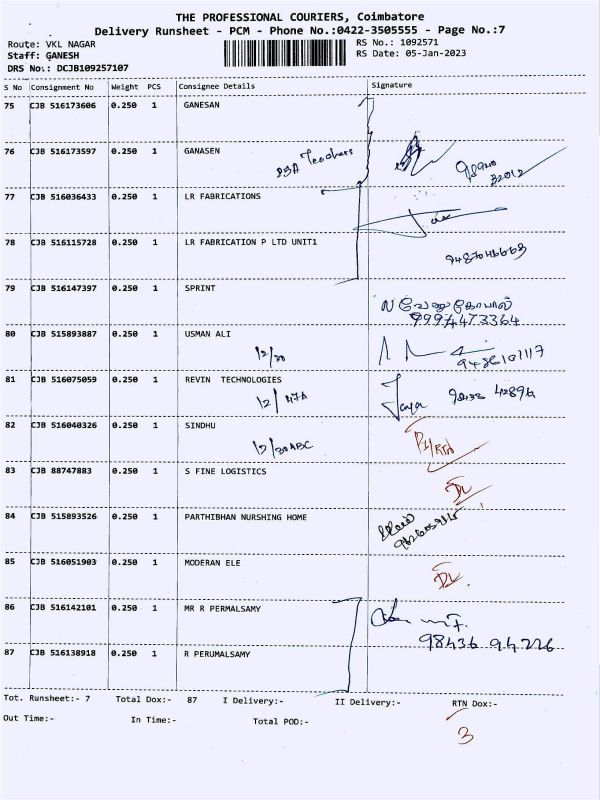 THE PROFESSIONAL COURIERS, Coimbatore
Delivery Runsheet - PCM - Phone No.:0422-3505555 - Page No.:7
Route: VKL NAGAR
RS No.: 1092571
Staff: GANESH
RS Date: 05-Jan-2023
DRS No.: DCJB109257107
S No Consignment No Weight PCS Consignee Details Signature
75 CJB 516173606 0.250 1 GANESAN
76 CJB 516173597 0.250 1 GANASEN
Teachers
77 CJB 516036433 0.250 1 LR FABRICATIONS
78 CJB 516115728 0.250 1 LR FABRICATION P LTD UNIT1
79 CJB 516147397 0.250 1 SPRINT
வேணுகோபால்
9994473364
80 CJB 515893887 0.250 1 USMAN ALI
12/30
9486101117
81 CJB 516075059 0.250 1 REVIN TECHNOLOGIES
12/47A
Jaya
82 CJB 516040326 0.250 1 SINDHU
12/30ABC
/RTN
83 CJB 88747883 0.250 1 S FINE LOGISTICS
DL
84 CJB 515893526 0.250 1 PARTHIBHAN NURSHING HOME
85 CJB 516051903 0.250 1 MODERAN ELE
DL
86 CJB 516142101 0.250 1 MR R PERMALSAMY
98436 94226
87 CJB 516138918 0.250 1 R PERUMALSAMY
Tot. Runsheet:- 7 Total Dox:- 87 I Delivery:- II Delivery:- RTN Dox:-
Out Time:- In Time:- Total POD:-
3